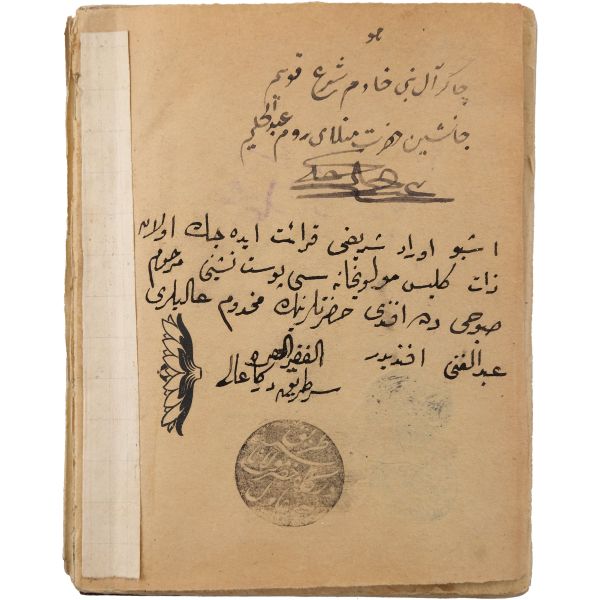 هو
چاكر آل نبی خادم شرع قویم
جانشین حضرت منلای روم عبدالحلیم
اشبو اوراد شریفی قرائت ایده جك اولان
ذات كلیس مولویخانه سی پوست نشینی مرحوم
صبوحی دده افندی حضرتلرینك مخدوم عالیلری
عبدالغنی افندیدر
الفقیر
سرطریق درگاه عالی